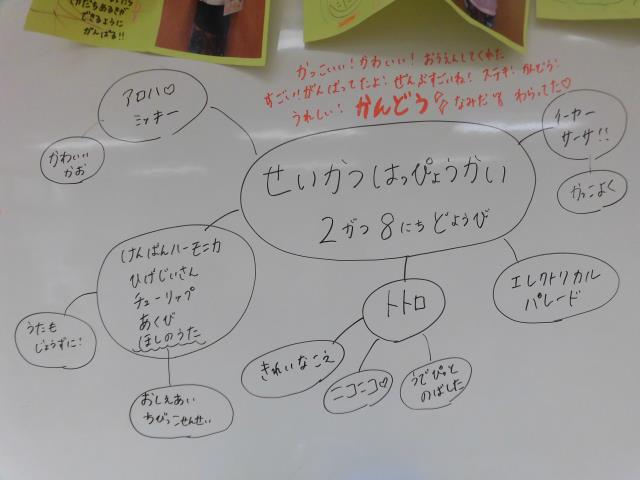 できるように
がんばる!!
かっこいい!かわいい!おうえんしてくれた
すごい!!がんばってたよ!ぜんぶすごいね!ステキ!かんどう!
うれしい!かんどうなみだわらってた♡
アロハ♡
ミッキー
かわいい
かお
せいかつはっぴょうかい
2がつ8にちどようび
イーヤー
サーサ!!
かっこよく
けんばんハーモニカ
ひげじいさん
チューリップ
あくび
ほしのうた
うたも
じょうずに!
おしえあい
ちびっこせんせい
トトロ
きれいなこえ
ニコニコ♡
うでぴっと
のばした
エレクトリカル
パレード